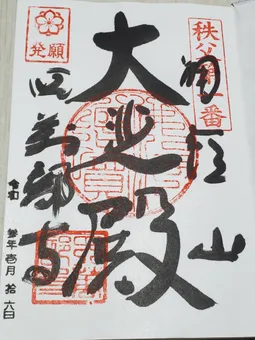 秩父第一番
誦経山
大悲殿
発願
四萬部寺
令和 参年 壱月 拾六日